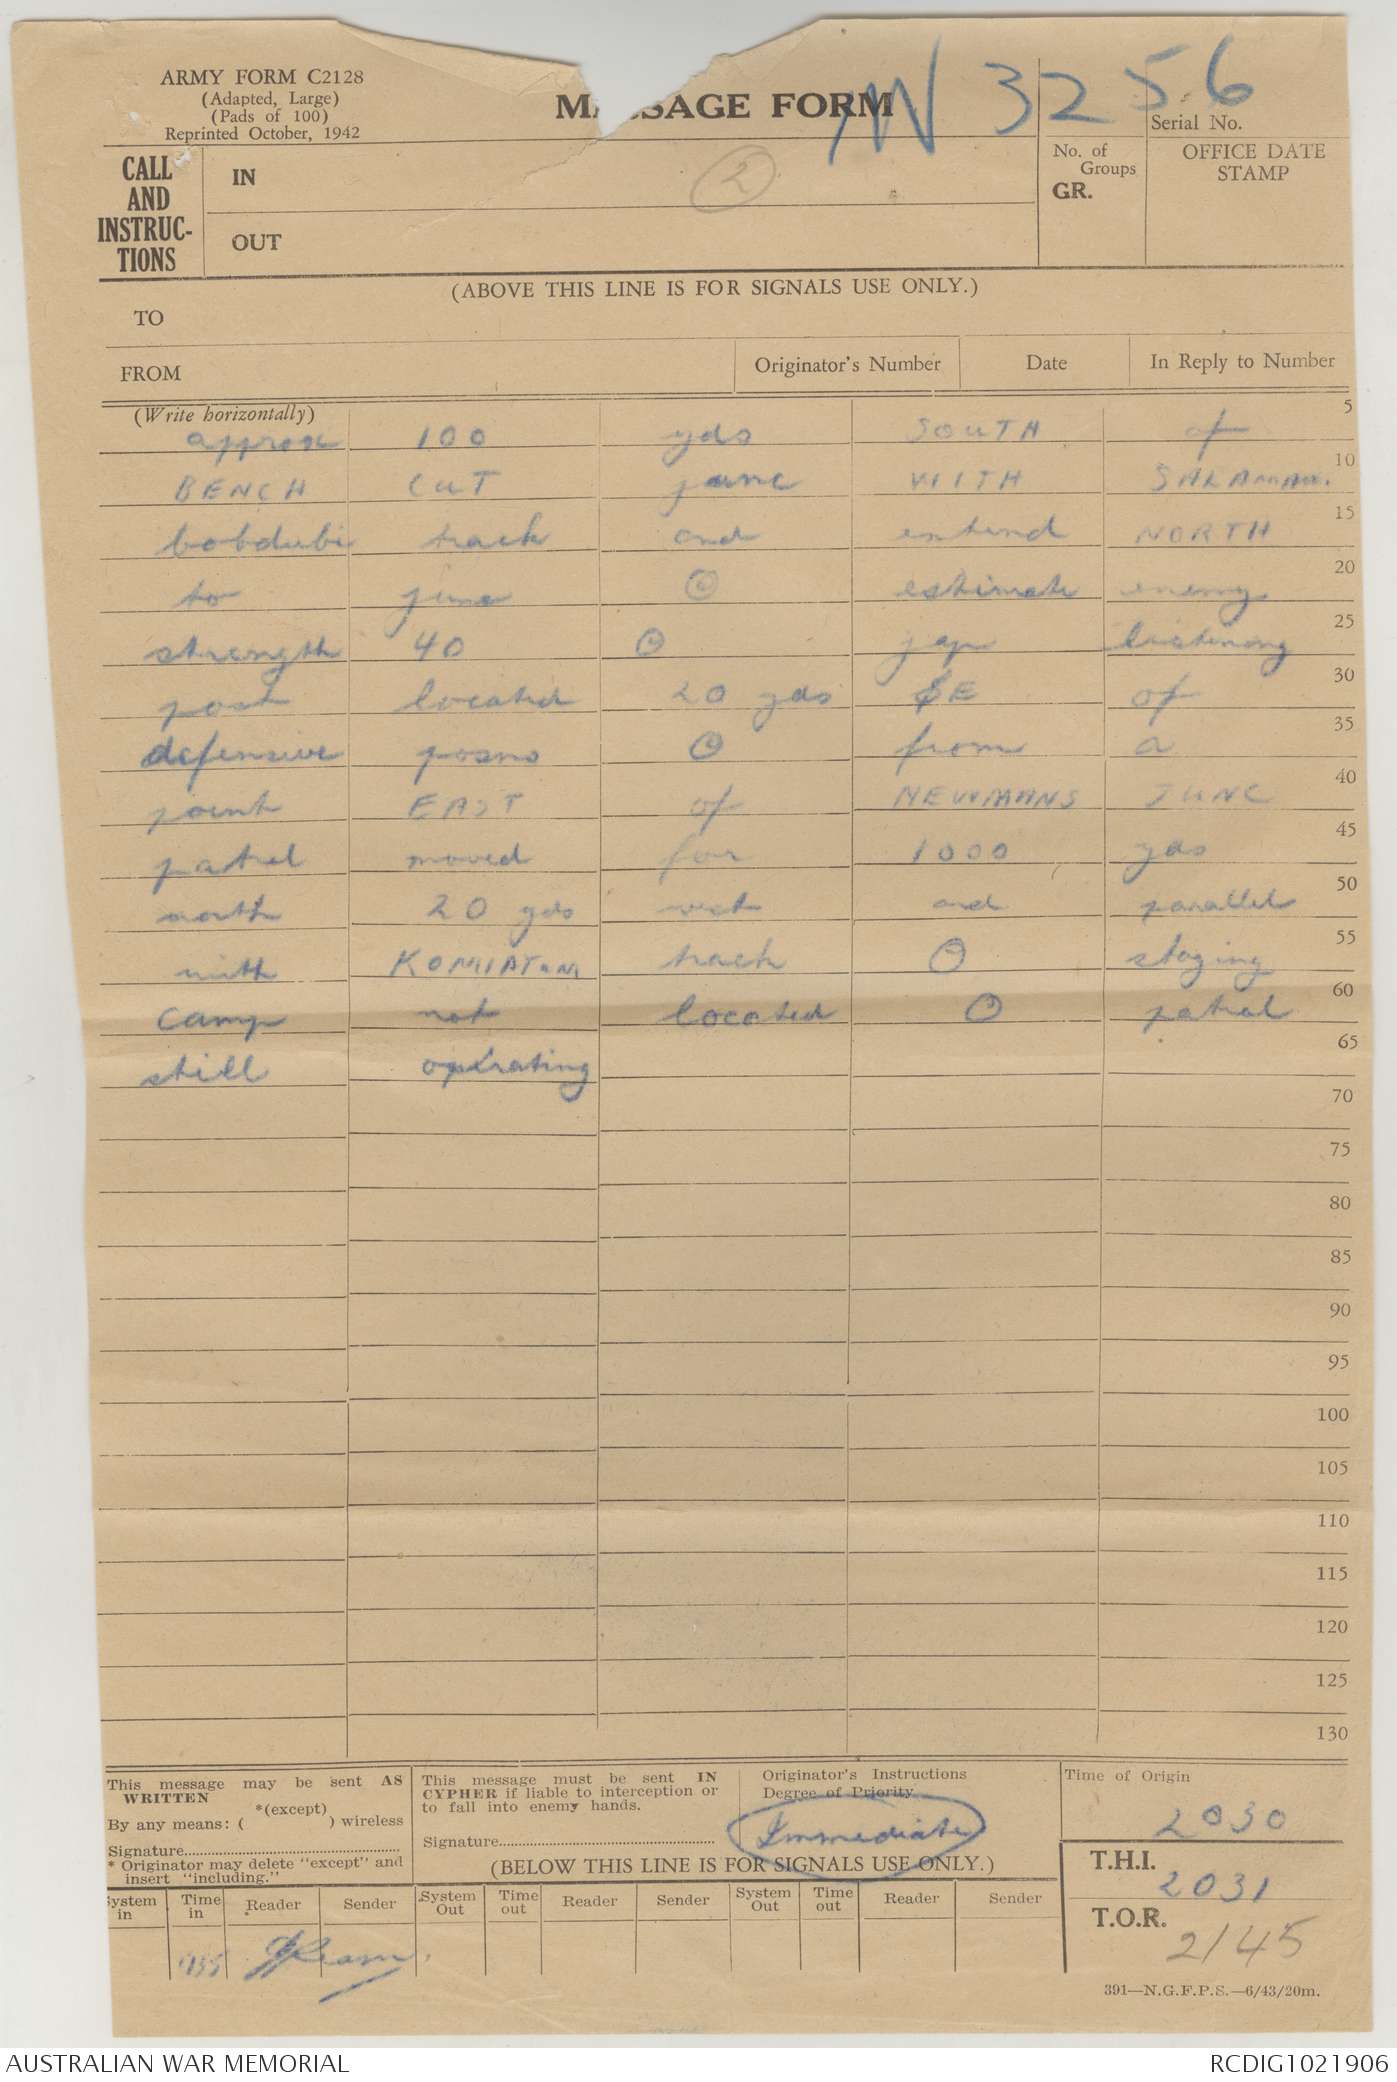 ARMY FORM C2128
(Adapted, Large)
(Pads of 100)
Reprinted October, 1942
MESSAGE FORM
IN 3256
Serial No.
CALL AND INSTRUC-TIONS
IN
2
OUT
No. of Groups
GR.
OFFICE DATE STAMP
(ABOVE THIS LINE IS FOR SIGNALS USE ONLY.)
TO
FROM
Originator's Number
Date
In Reply to Number
(Write horizontally)
approx 100 yds SOUTH of 5
BENCH CUT junc WITH SALAMAUA. 10
bobdubi track and extend NORTH 15
to junc ⊙ estimate enemy 20
strength 40 ⊙ jap listening 25
post located 20 yds SE of 30
defensive posns ⊙ from a 35
point EAST of NEWMANS JUNC 40
patrol moved for 1000 yds 45
north 20 yds west and parallel 50
with KOMIATUM track ⊙ staging 55
camp not located ⊙ patrol 60
still operating 65
70
75
80
85
90
95
100
105
110
115
120
125
130
This message may be sent AS WRITTEN
By any means: ( *(except) ) wireless
Signature
* Originator may delete "except" and insert "including."
This message must be sent IN CYPHER if liable to interception or to fall into enemy hands.
Signature
Originator's Instructions
Degree of Priority
Immediate
Time of Origin
2030
(BELOW THIS LINE IS FOR SIGNALS USE ONLY.)
T.H.I.
2031
T.O.R.
2145
System in
Time in
Reader
Sender
System Out
Time out
Reader
Sender
System Out
Time out
Reader
Sender
391—N.G.F.P.S.—6/43/20m.
AUSTRALIAN WAR MEMORIAL
RCDIG1021906